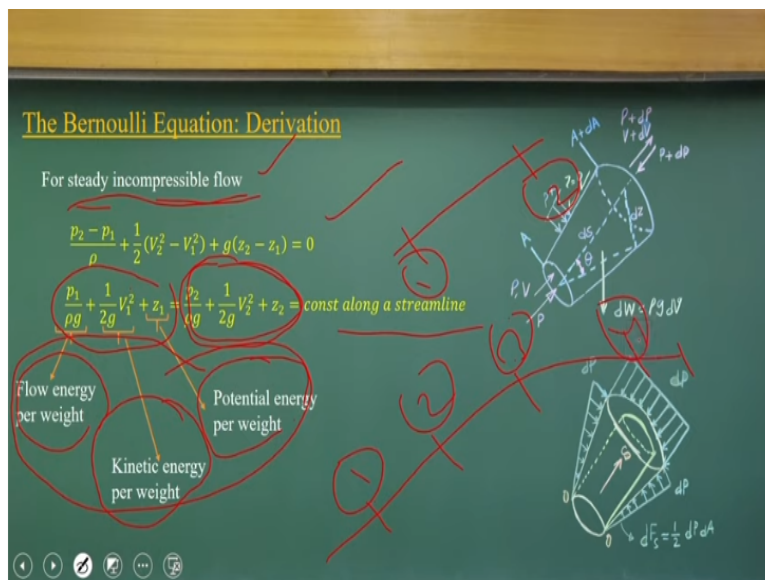 The Bernoulli Equation: Derivation
For steady incompressible flow
(p₂ − p₁)/ρ + 1/2(V₂² − V₁²) + g(z₂ − z₁) = 0
p₁/ρg + 1/2g V₁² + z₁ = p₂/ρg + 1/2g V₂² + z₂ = const along a streamline
Flow energy
per weight
Kinetic energy
per weight
Potential energy
per weight
A+dA
P+dP
V+dV
P+dP
A
ds
dz
θ
P,V
P
dW = ρg dV
1
2
1
2
3
4
dP
dP
dP
S
0
0
dFs = 1/2 dP dA